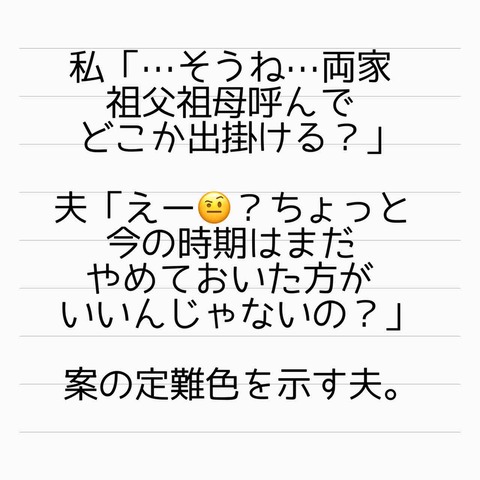 私「…そうね…両家
祖父祖母呼んで
どこか出掛ける？」
夫「えー🤨？ちょっと
今の時期はまだ
やめておいた方が
いいんじゃないの？」
案の定難色を示す夫。